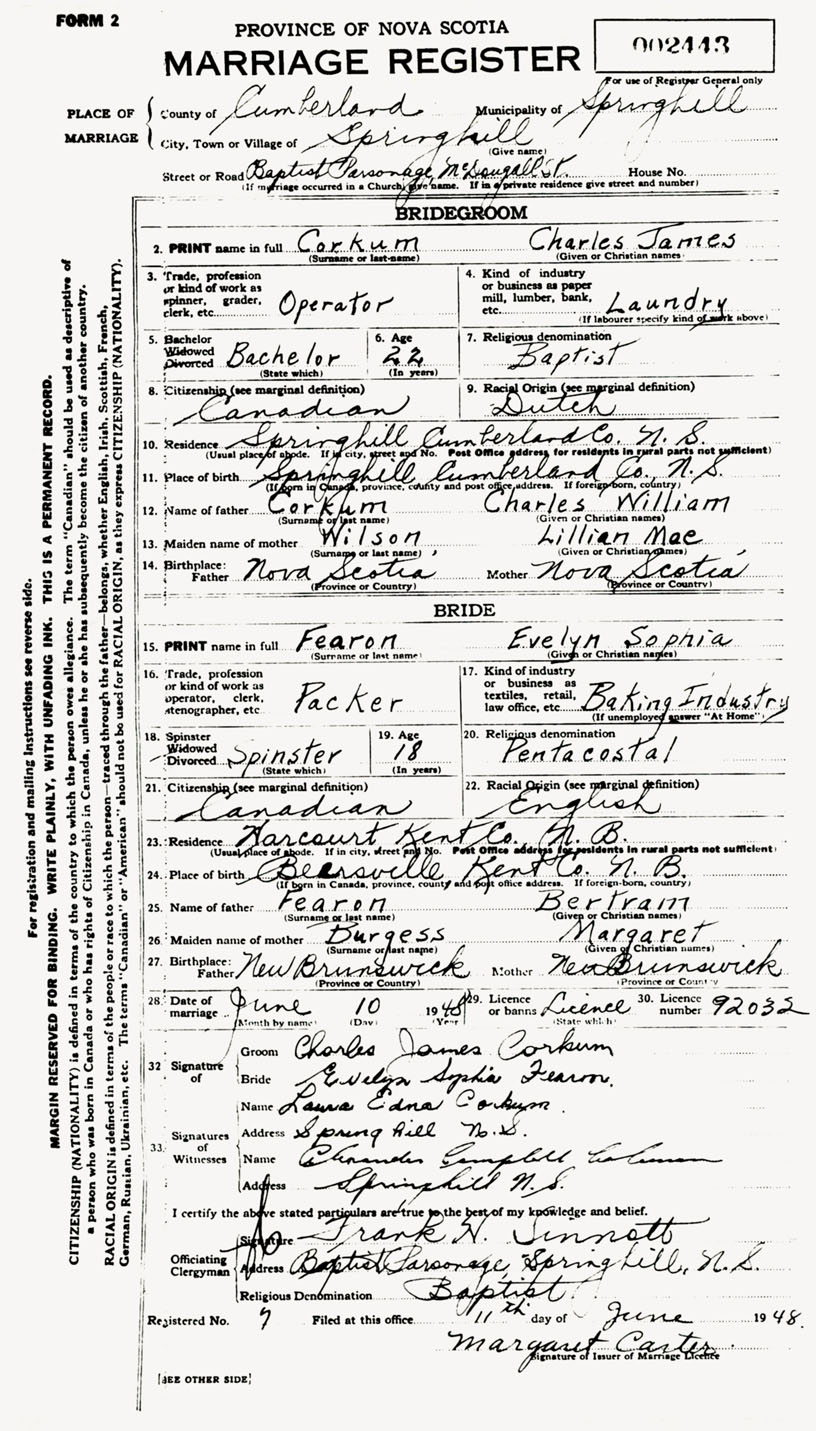 FORM 2
PROVINCE OF NOVA SCOTIA
MARRIAGE REGISTER
002443
For use of Registrar General only
PLACE OF MARRIAGE
County of Cumberland Municipality of Springhill
City, Town or Village of Springhill
(Give name)
Street or Road Baptist Parsonage, McDougall St. House No.
(If marriage occurred in a Church, give name. If in a private residence give street and number)
BRIDEGROOM
2. PRINT name in full Corkum Charles James
(Surname or last-name) (Given or Christian names)
3. Trade, profession or kind of work as spinner, grader, clerk, etc. Operator
4. Kind of industry or business as paper mill, lumber, bank, etc. Laundry
(If labourer specify kind of work above)
5. Bachelor Widowed Divorced Bachelor
(State which)
6. Age 22
(In years)
7. Religious denomination
Baptist
8. Citizenship (see marginal definition)
Canadian
9. Racial Origin (see marginal definition)
Dutch
10. Residence Springhill Cumberland Co. N. S.
(Usual place of abode. If in city, street and No. Post Office address for residents in rural parts not sufficient)
11. Place of birth Springhill Cumberland Co. N. S.
(If born in Canada, province, county and post office address. If foreign-born, country)
12. Name of father Corkum Charles William
(Surname or last name) (Given or Christian names)
13. Maiden name of mother Wilson Lillian Mae
(Surname or last name) (Given or Christian names)
14. Birthplace: Father Nova Scotia Mother Nova Scotia
(Province or Country) (Province or Country)
BRIDE
15. PRINT name in full Fearon Evelyn Sophia
(Surname or last name) (Given or Christian names)
16. Trade, profession or kind of work as operator, clerk, stenographer, etc. Packer
17. Kind of industry or business as textiles, retail, law office, etc. Baking Industry
(If unemployed answer "At Home")
18. Spinster Widowed Divorced Spinster
(State which)
19. Age 18
(In years)
20. Religious denomination
Pentacostal
21. Citizenship (see marginal definition)
Canadian
22. Racial Origin (see marginal definition)
English
23. Residence Harcourt Kent Co. N. B.
(Usual place of abode. If in city, street and No. Post Office address for residents in rural parts not sufficient)
24. Place of birth Beersville Kent Co. N. B.
(If born in Canada, province, county and post office address. If foreign-born, country)
25. Name of father Fearon Bertram
(Surname or last name) (Given or Christian names)
26. Maiden name of mother Burgess Margaret
(Surname or last name) (Given or Christian names)
27. Birthplace: Father New Brunswick Mother New Brunswick
(Province or Country) (Province or Country)
28. Date of marriage June 10 1948
(Month by name) (Day) (Year)
29. Licence or banns Licence
(State which)
30. Licence number 92032
32 Signature of
Groom Charles James Corkum
Bride Evelyn Sophia Fearon.
33. Signatures of Witnesses
Name Laura Edna Corkum.
Address Spring hill N.S.
Name Campbell
Address Springhill N.S.
I certify the above stated particulars are true to the best of my knowledge and belief.
Officiating Clergyman
Signature Frank H. Sinnott
Address Baptist Parsonage, Springhill, N. S.
Religious Denomination Baptist
Registered No. 7 Filed at this office 11th day of June 1948.
Margaret Carter
Signature of Issuer of Marriage Licence
[SEE OTHER SIDE]
For registration and mailing instructions see reverse side.
MARGIN RESERVED FOR BINDING. WRITE PLAINLY, WITH UNFADING INK. THIS IS A PERMANENT RECORD.
CITIZENSHIP (NATIONALITY) is defined in terms of the country to which the person owes allegiance. The term "Canadian" should be used as descriptive of
a person who was born in Canada or who has rights of Citizenship in Canada, unless he or she has subsequently become the citizen of another country.
RACIAL ORIGIN is defined in terms of the people or race to which the person—traced through the father—belongs, whether English, Irish, Scottish, French,
German, Russian, Ukrainian, etc. The terms "Canadian" or "American" should not be used for RACIAL ORIGIN, as they express CITIZENSHIP (NATIONALITY).